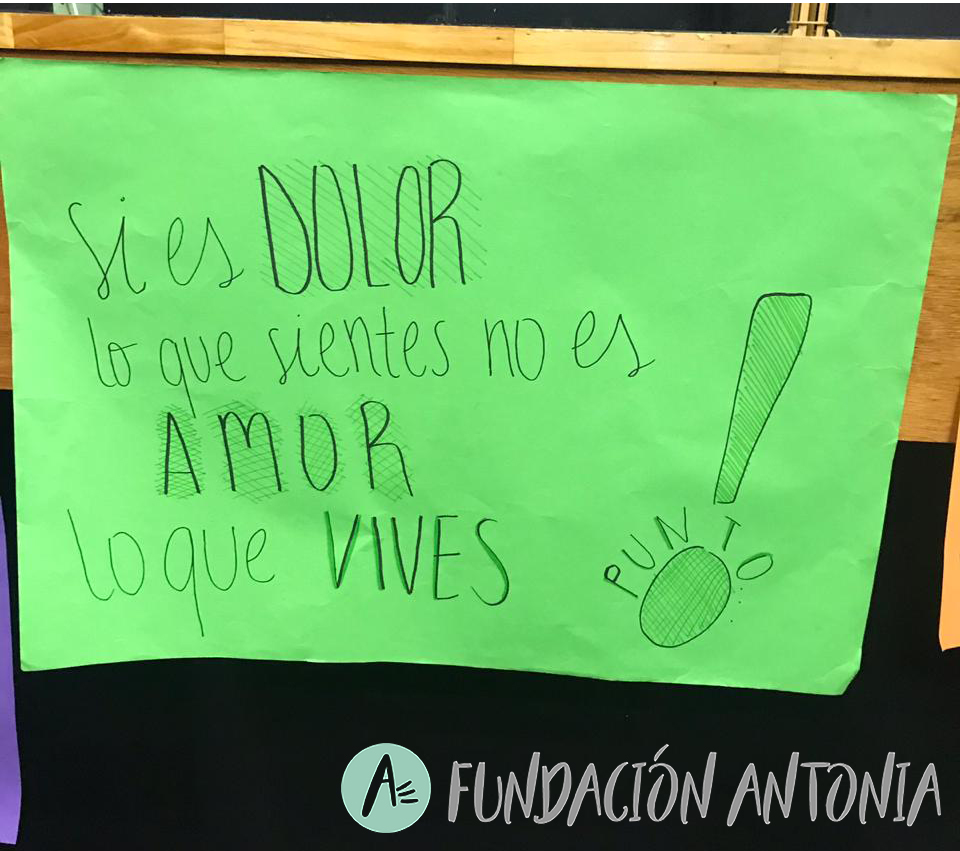 Si es DOLOR
lo que sientes no es
AMOR
lo que VIVES
PUNTO
A FUNDACIÓN ANTONIA